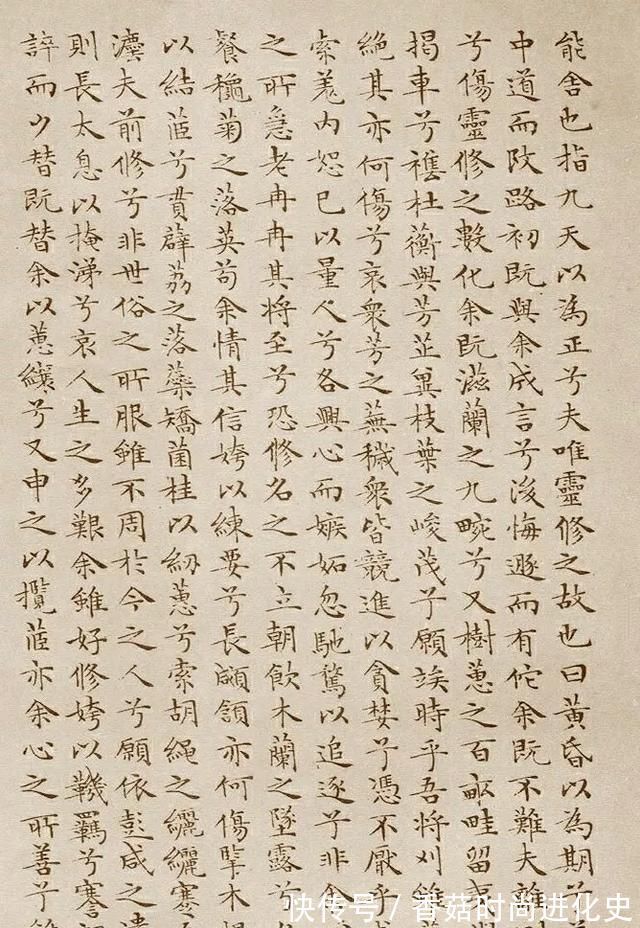 能舍也指九天以為正兮夫唯靈修之故也曰黃昏以為期兮
中道而改路初既與余成言兮後悔遯而有佗余既不難夫離
兮傷靈修之數化余既滋蘭之九畹兮又樹蕙之百畝畦留夷
揭車兮襍杜蘅與芳芷冀枝葉之峻茂兮願竢時乎吾將刈雖
絕其亦何傷兮哀衆芳之蕪穢衆皆競進以貪婪兮憑不厭乎
索羌內恕已以量人兮各興心而嫉妬忽馳騖以追逐兮非余
之所急老冉冉其將至兮恐修名之不立朝飲木蘭之墜露兮
餐秋菊之落英苟余情其信姱以練要兮長顑頷亦何傷擥木
以結茝兮貫薜荔之落蘂矯菌桂以紉蕙兮索胡繩之纚纚謇
灋夫前修兮非世俗之所服雖不周於今之人兮願依彭咸之遺
則長太息以掩涕兮哀人生之多艱余雖好修姱以鞿羈兮謇
誶而夕替既替余以蕙纕兮又申之以攬茝亦余心之所善兮
快传号/香菇时尚进化史